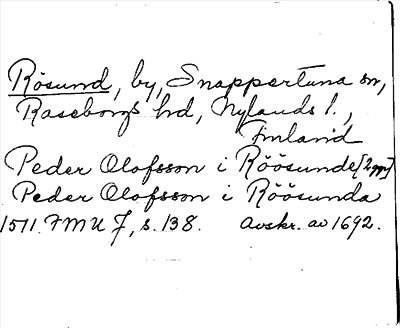 Rösund, by, Snappertuna sn,
Raseborgs hd, Nylands l.,
Finland
Peder Olofsson i Röösunde [2 ggr]
Peder Olofsson i Röösunda
1571. FMU J, s. 138. Avskr. av 1692.